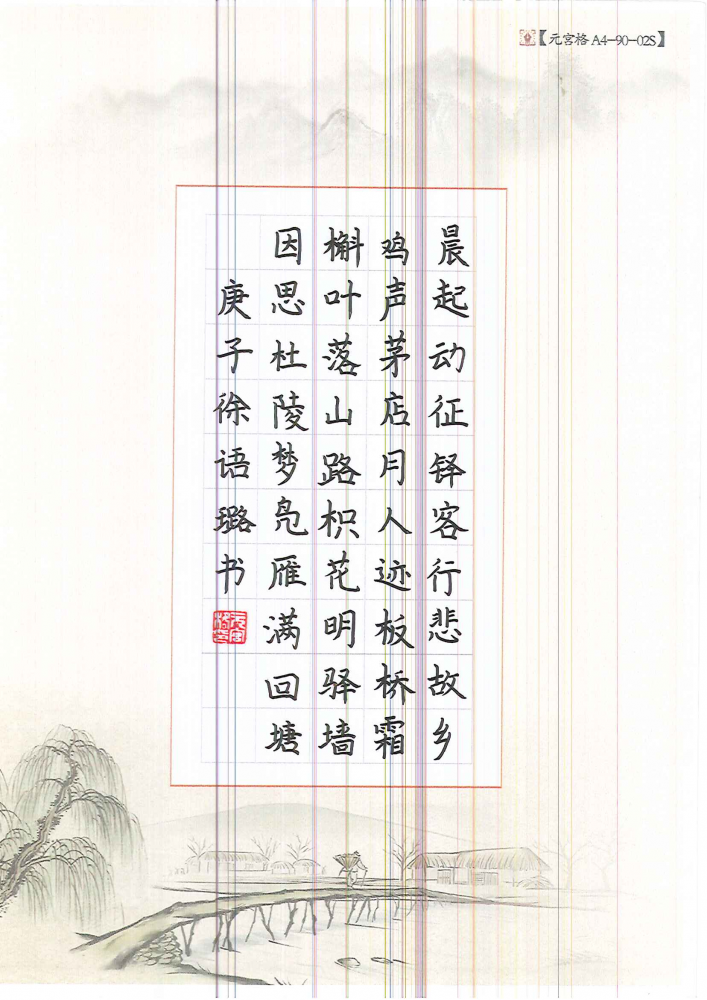 【元宫格 A4-90-02S】
晨起动征铎客行悲故乡
鸡声茅店月人迹板桥霜
槲叶落山路枳花明驿墙
因思杜陵梦凫雁满回塘
庚子徐语璐书